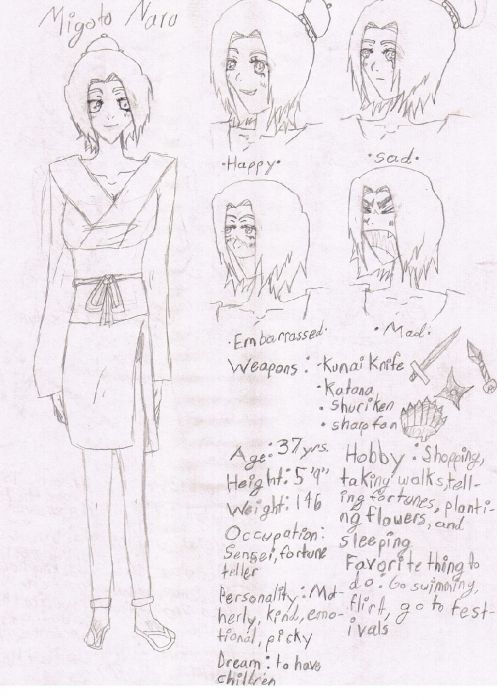 Migoto Naru
•Happy•
•sad•
•Embarrassed•
•Mad•
Weapons: •Kunai Knife
•Katana
•shuriken
•sharp fan
Age: 37 yrs.
Height: 5'9"
Weight: 146
Occupation:
Sensei, fortune
teller
Personality: Mot-
herly, kind, emo-
tional, picky
Dream: to have
children
Hobby: Shopping,
taking walks, tell-
ing fortunes, planti-
ng flowers, and
sleeping
Favorite thing to
do: Go swimming,
flirt, go to fest-
ivals